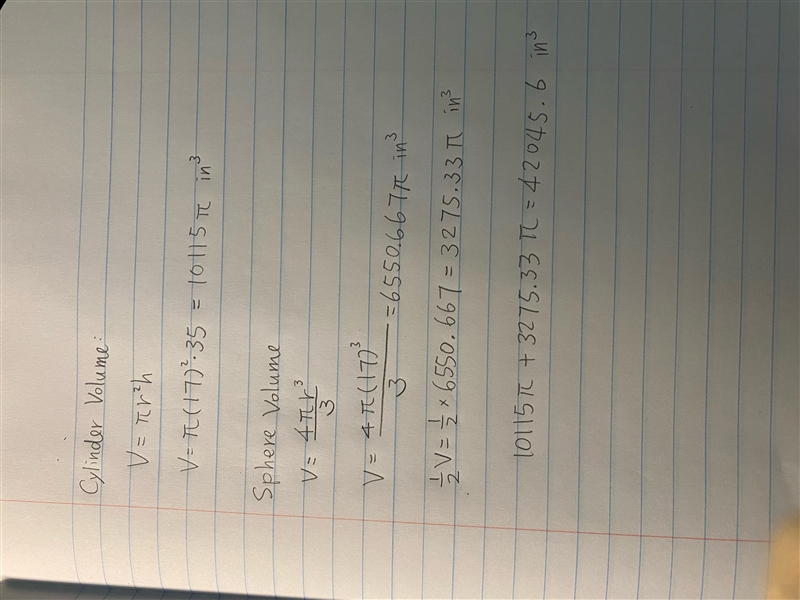 Cylinder Volume:
V = πr²h
V = π(17)²·35 = 10115π in³
Sphere Volume
V = 4πr³/3
V = 4π(17)³/3 = 6550.667π in³
½V = ½ × 6550.667 = 3275.33π in³
10115π + 3275.33π = 42045.6 in³